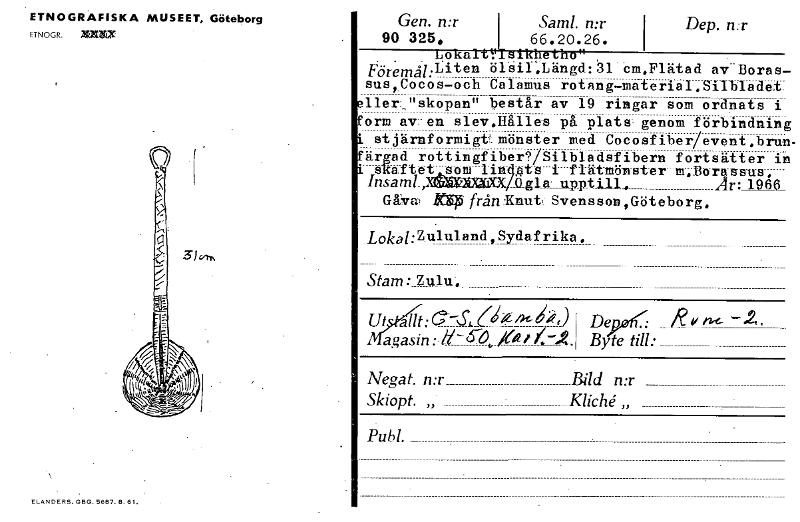 ETNOGRAFISKA MUSEET, Göteborg
ETNOGR.
31cm
ELANDERS. GBG. 5667. 8. 61.
Gen. n:r Saml. n:r Dep. n:r
90 325. 66.20.26.
Lokalt"Isikhetho"
Föremål: Liten ölsil.Längd:31 cm.Flätad av Boras-
sus,Cocos-och Calamus rotang-material.Silbladet
eller "skopan" består av 19 ringar som ordnats i
form av en slev.Hålles på plats genom förbindning
i stjärnformigt mönster med Cocosfiber/event.brun-
färgad rottingfiber?/Silbladsfibern fortsätter in
i skaftet som lindats i flätmönster m.Borassus.
Insaml. /Ögla upptill. År: 1966
Gåva från Knut Svensson,Göteborg.
Lokal: Zululand,Sydafrika.
Stam: Zulu.
Utställt: C-S.(bamba.) Depon.: Rum-2.
Magasin: H-50. Kart.-2 Byte till:
Negat. n:r Bild n:r
Skiopt. „ Kliché „
Publ.